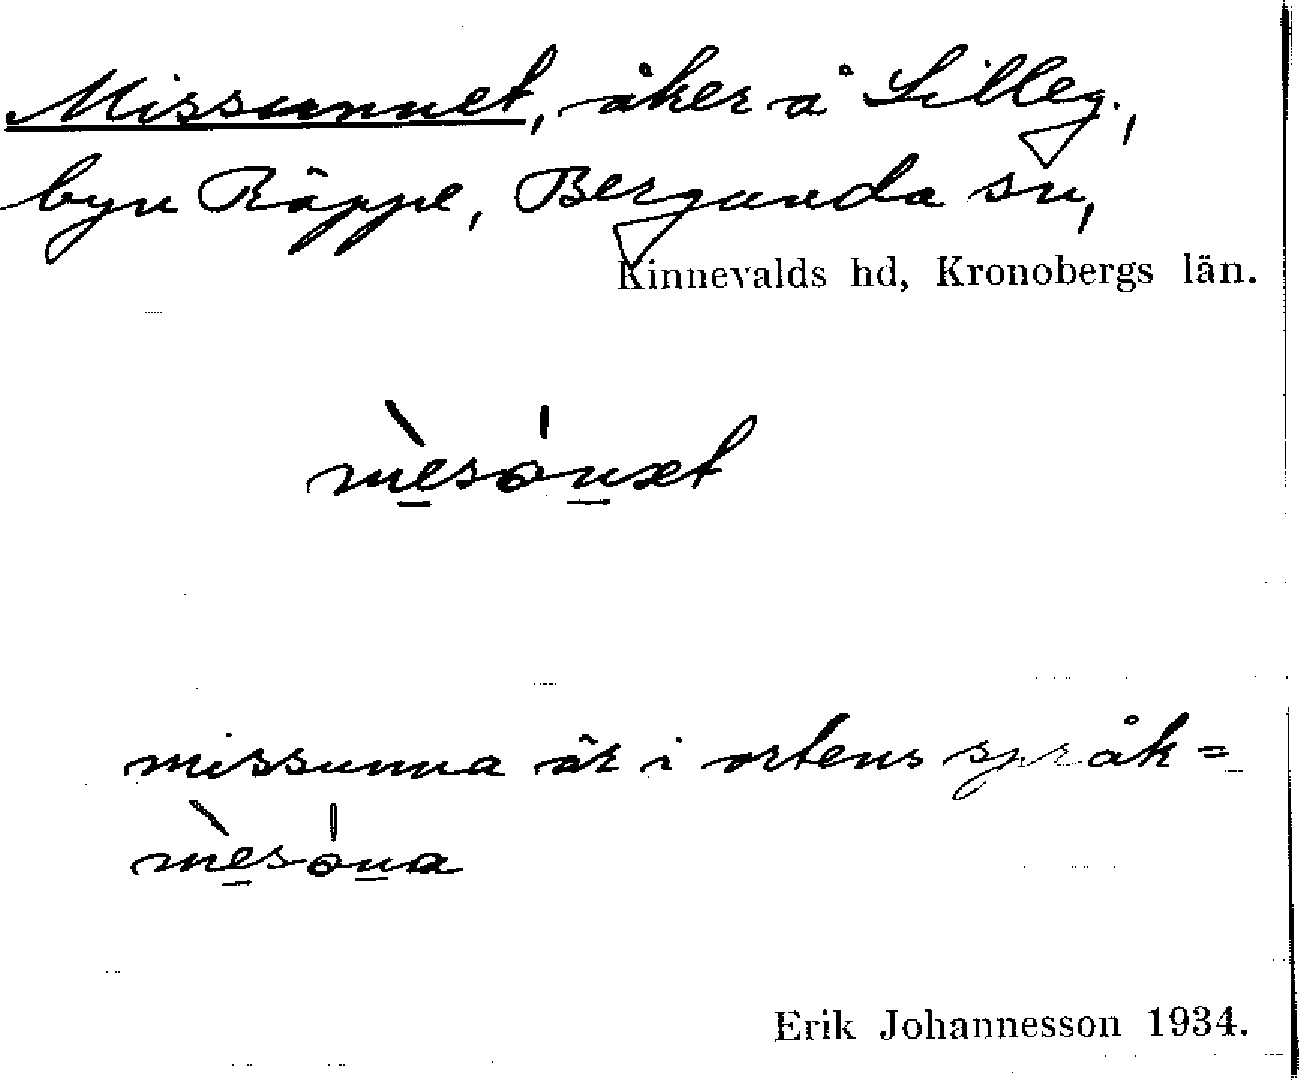 Missunnet, åker å Lilleg.,
byn Räppe, Bergunda sn,
Kinnevalds hd, Kronobergs län.
mèsónet
missunna är i ortens språk =
mèsóna
Erik Johannesson 1934.